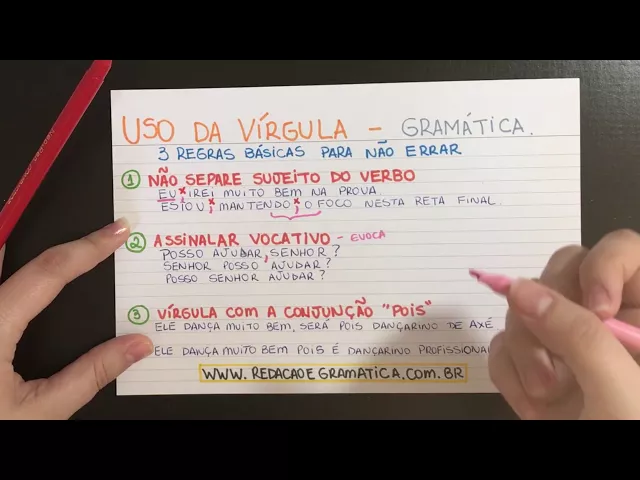 USO DA VÍRGULA - GRAMÁTICA.
3 REGRAS BÁSICAS PARA NÃO ERRAR
1 NÃO SEPARE SUJEITO DO VERBO
EU, IREI MUITO BEM NA PROVA.
ESTOU, MANTENDO, O FOCO NESTA RETA FINAL.
2 ASSINALAR VOCATIVO - EVOCA
POSSO AJUDAR, SENHOR?
SENHOR POSSO AJUDAR?
POSSO SENHOR AJUDAR?
3 VÍRGULA COM A CONJUNÇÃO "POIS"
ELE DANÇA MUITO BEM, SERÁ POIS DANÇARINO DE AXÉ
ELE DANÇA MUITO BEM POIS É DANÇARINO PROFISSIONAL
WWW.REDACAOEGRAMATICA.COM.BR